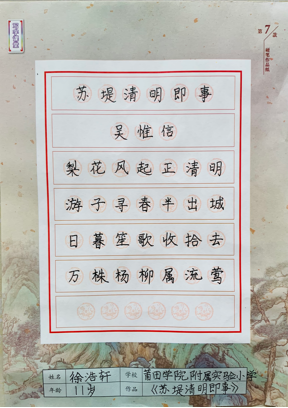 第7款
硬笔作品纸
苏堤清明即事
吴惟信
梨花风起正清明
游子寻春半出城
日暮笙歌收拾去
万株杨柳属流莺
姓名 徐浩轩 学校 莆田学院附属实验小学
年龄 11岁 作品 《苏堤清明即事》